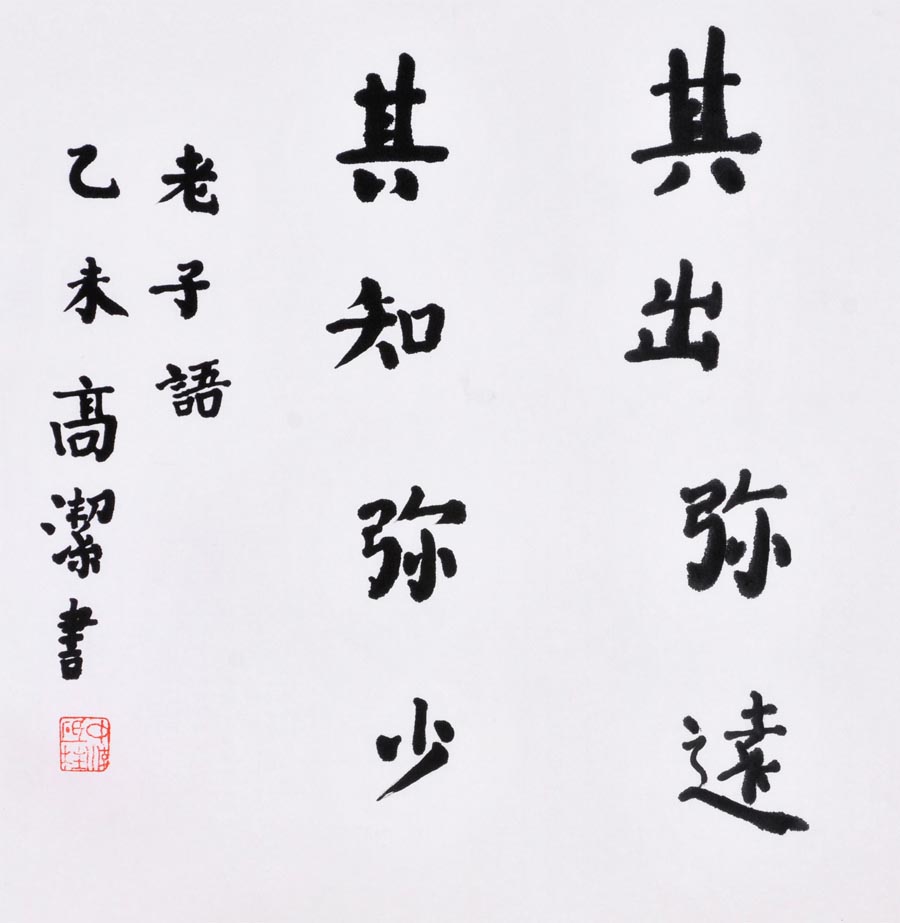 其出弥遠
其知弥少
老子語
乙未高潔書